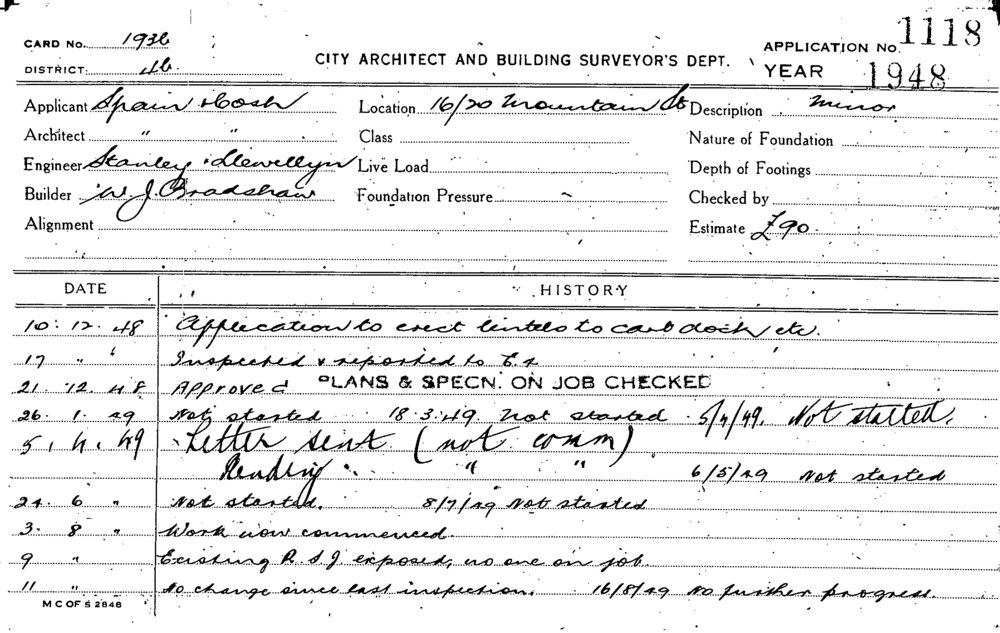 CARD No. 1936
DISTRICT. 4b.
CITY ARCHITECT AND BUILDING SURVEYOR'S DEPT.
APPLICATION No. 1118
YEAR 1948
Applicant Spain & Cosh Location 16/20 Mountain St Description Minor
Architect " " Class Nature of Foundation
Engineer Stanley & Llewellyn Live Load Depth of Footings
Builder W. J. Bradshaw Foundation Pressure Checked by
Alignment Estimate £90.
DATE HISTORY
10. 12. 48 Application to erect lintels to cart dock etc.
17 " " Inspected & reported to
21. 12. 48 Approved PLANS & SPECN. ON JOB CHECKED
26. 1. 49 Not started 18.3.49. Not started 5/4/49. Not started.
5. 4. 49 Letter sent (not comm)
Pending " " 6/5/49 Not started
24. 6 " Not started. 8/7/49 Not started
3. 8 " Work now commenced.
9 " Existing R.S.J. exposed, no one on job.
11 " No change since last inspection. 16/8/49 No further progress.
M C OF S 2848